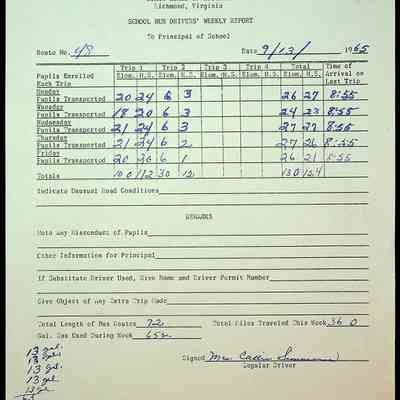 Richmond, Virginia
SCHOOL BUS DRIVERS' WEEKLY REPORT
To Principal of School
Route No. 48 Date 9/13/ 1965
Trip 1 Trip 2 Trip 3 Trip 4 Total Time of
Pupils Enrolled Elem. H.S. Elem. H.S. Elem. H.S. Elem. H.S. Elem. H.S. Arrival on
Each Trip Last Trip
Monday
Pupils Transported 20 24 6 3 26 27 8:55
Tuesday
Pupils Transported 18 20 6 3 24 23 8:55
Wednesday
Pupils Transported 21 24 6 3 27 27 8:55
Thursday
Pupils Transported 21 24 6 2 27 26 8:55
Friday
Pupils Transported 20 20 6 1 26 21 8:55
Totals 100 112 30 12 130 124
Indicate Unusual Road Conditions
REMARKS
Note Any Misconduct of Pupils
Other Information for Principal
If Substitute Driver Used, Give Name and Driver Permit Number
Give Object of Any Extra Trip Made
Total Length of Bus Routes 72 Total Miles Traveled This Week 360
Gal. Gas Used During Week 65
Signed Mrs.
Regular Driver
13 gal.
13 gal.
13 gal.
13 gal
13 gal